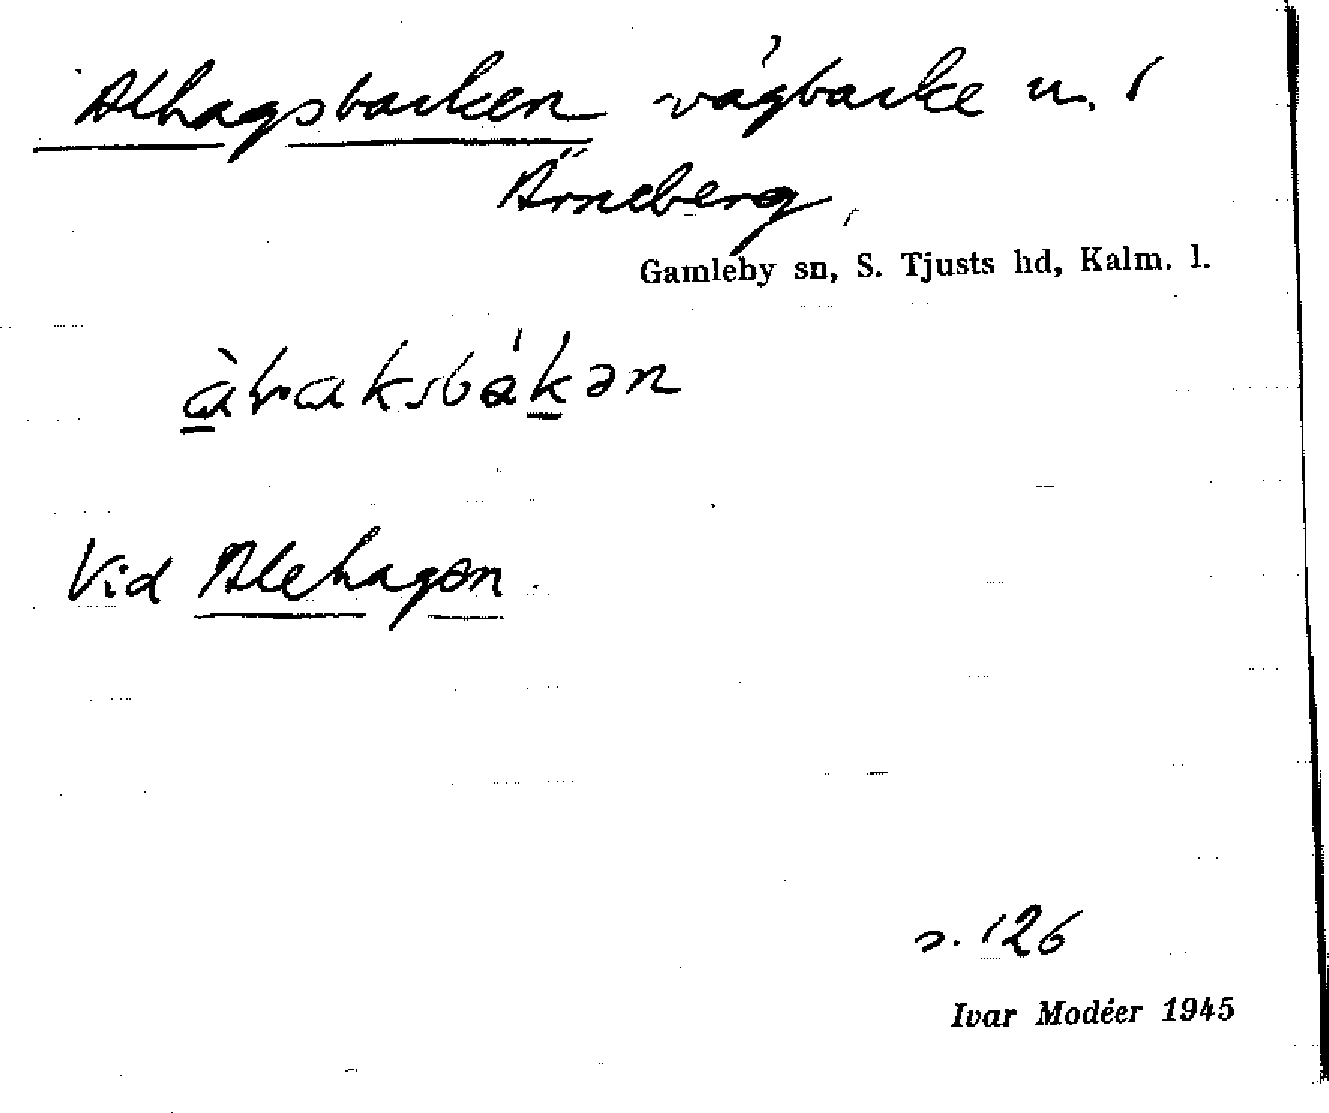 Alhagsbacken vägbacke n. 1
Ärneberg,
Gamleby sn, S. Tjusts hd, Kalm. l.
Vid Alehagen.
s. 126
Ivar Modéer 1945